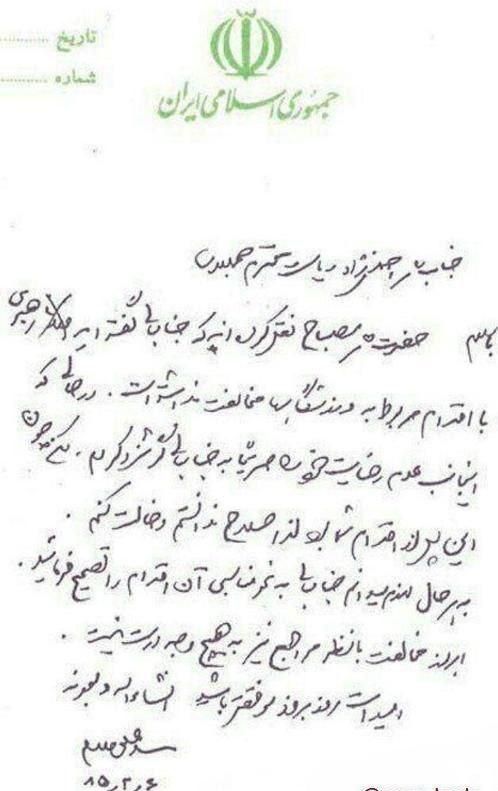 تاریخ ..........
شماره ..........
جمهوری اسلامی ایران
جناب آقای احمدی‌نژاد ریاست محترم جمهوری
با سلام حضرت آقای مصباح نقل کردند که جنابعالی گفته‌اید رهبری
با اقدام مربوط به ورزشگاهها مخالفت نداشته است . در حالی که
اینجانب عدم رضایت خود را صریحا به جنابعالی گوشزد کردم .
این پس از اقدام شما بود لذا صلاح ندانستم دخالت کنم .
به هر حال لازم میدانم جنابعالی به نحو مناسبی آن اقدام را تصحیح فرمائید .
ابراز مخالفت با نظر مراجع نیز به هیچ وجه درست نیست .
امید است روز بروز موفقتر باشید انشاءاله و بعونه
سید علی